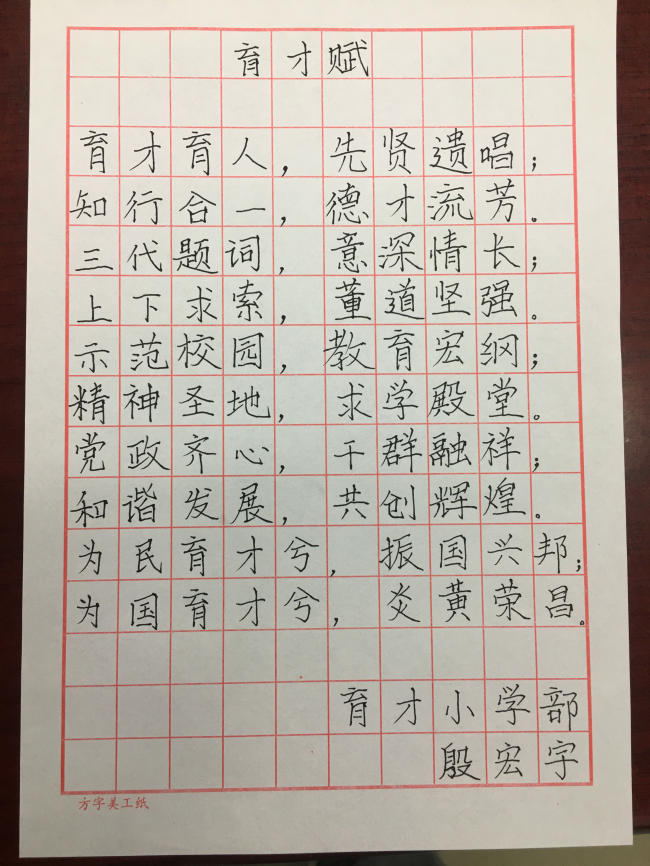 育才赋
育才育人，先贤遗唱；
知行合一，德才流芳。
三代题词，意深情长；
上下求索，董道坚强。
示范校园，教育宏纲；
精神圣地，求学殿堂。
党政齐心，干群融祥；
和谐发展，共创辉煌。
为民育才兮，振国兴邦；
为国育才兮，炎黄荣昌。
育才小学部
殷宏宇
方字美工纸